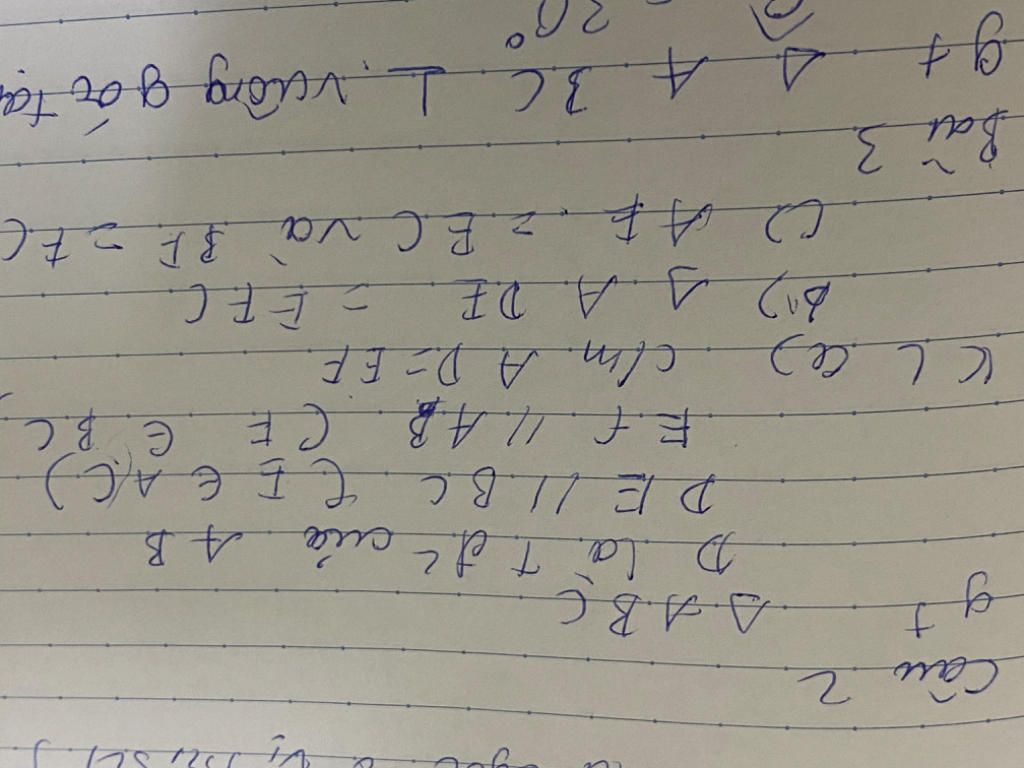 Câu 2
gt Δ ABC
D là t đ' của AB
DE // BC (E ∈ AC)
EF // AB (F ∈ BC
KL a) c/m AD = EF
b) Δ ADE = EFC
c) AE = EC và BF = FC
Bài 3
gt Δ ABC ⊥ vuông góc tại
30°